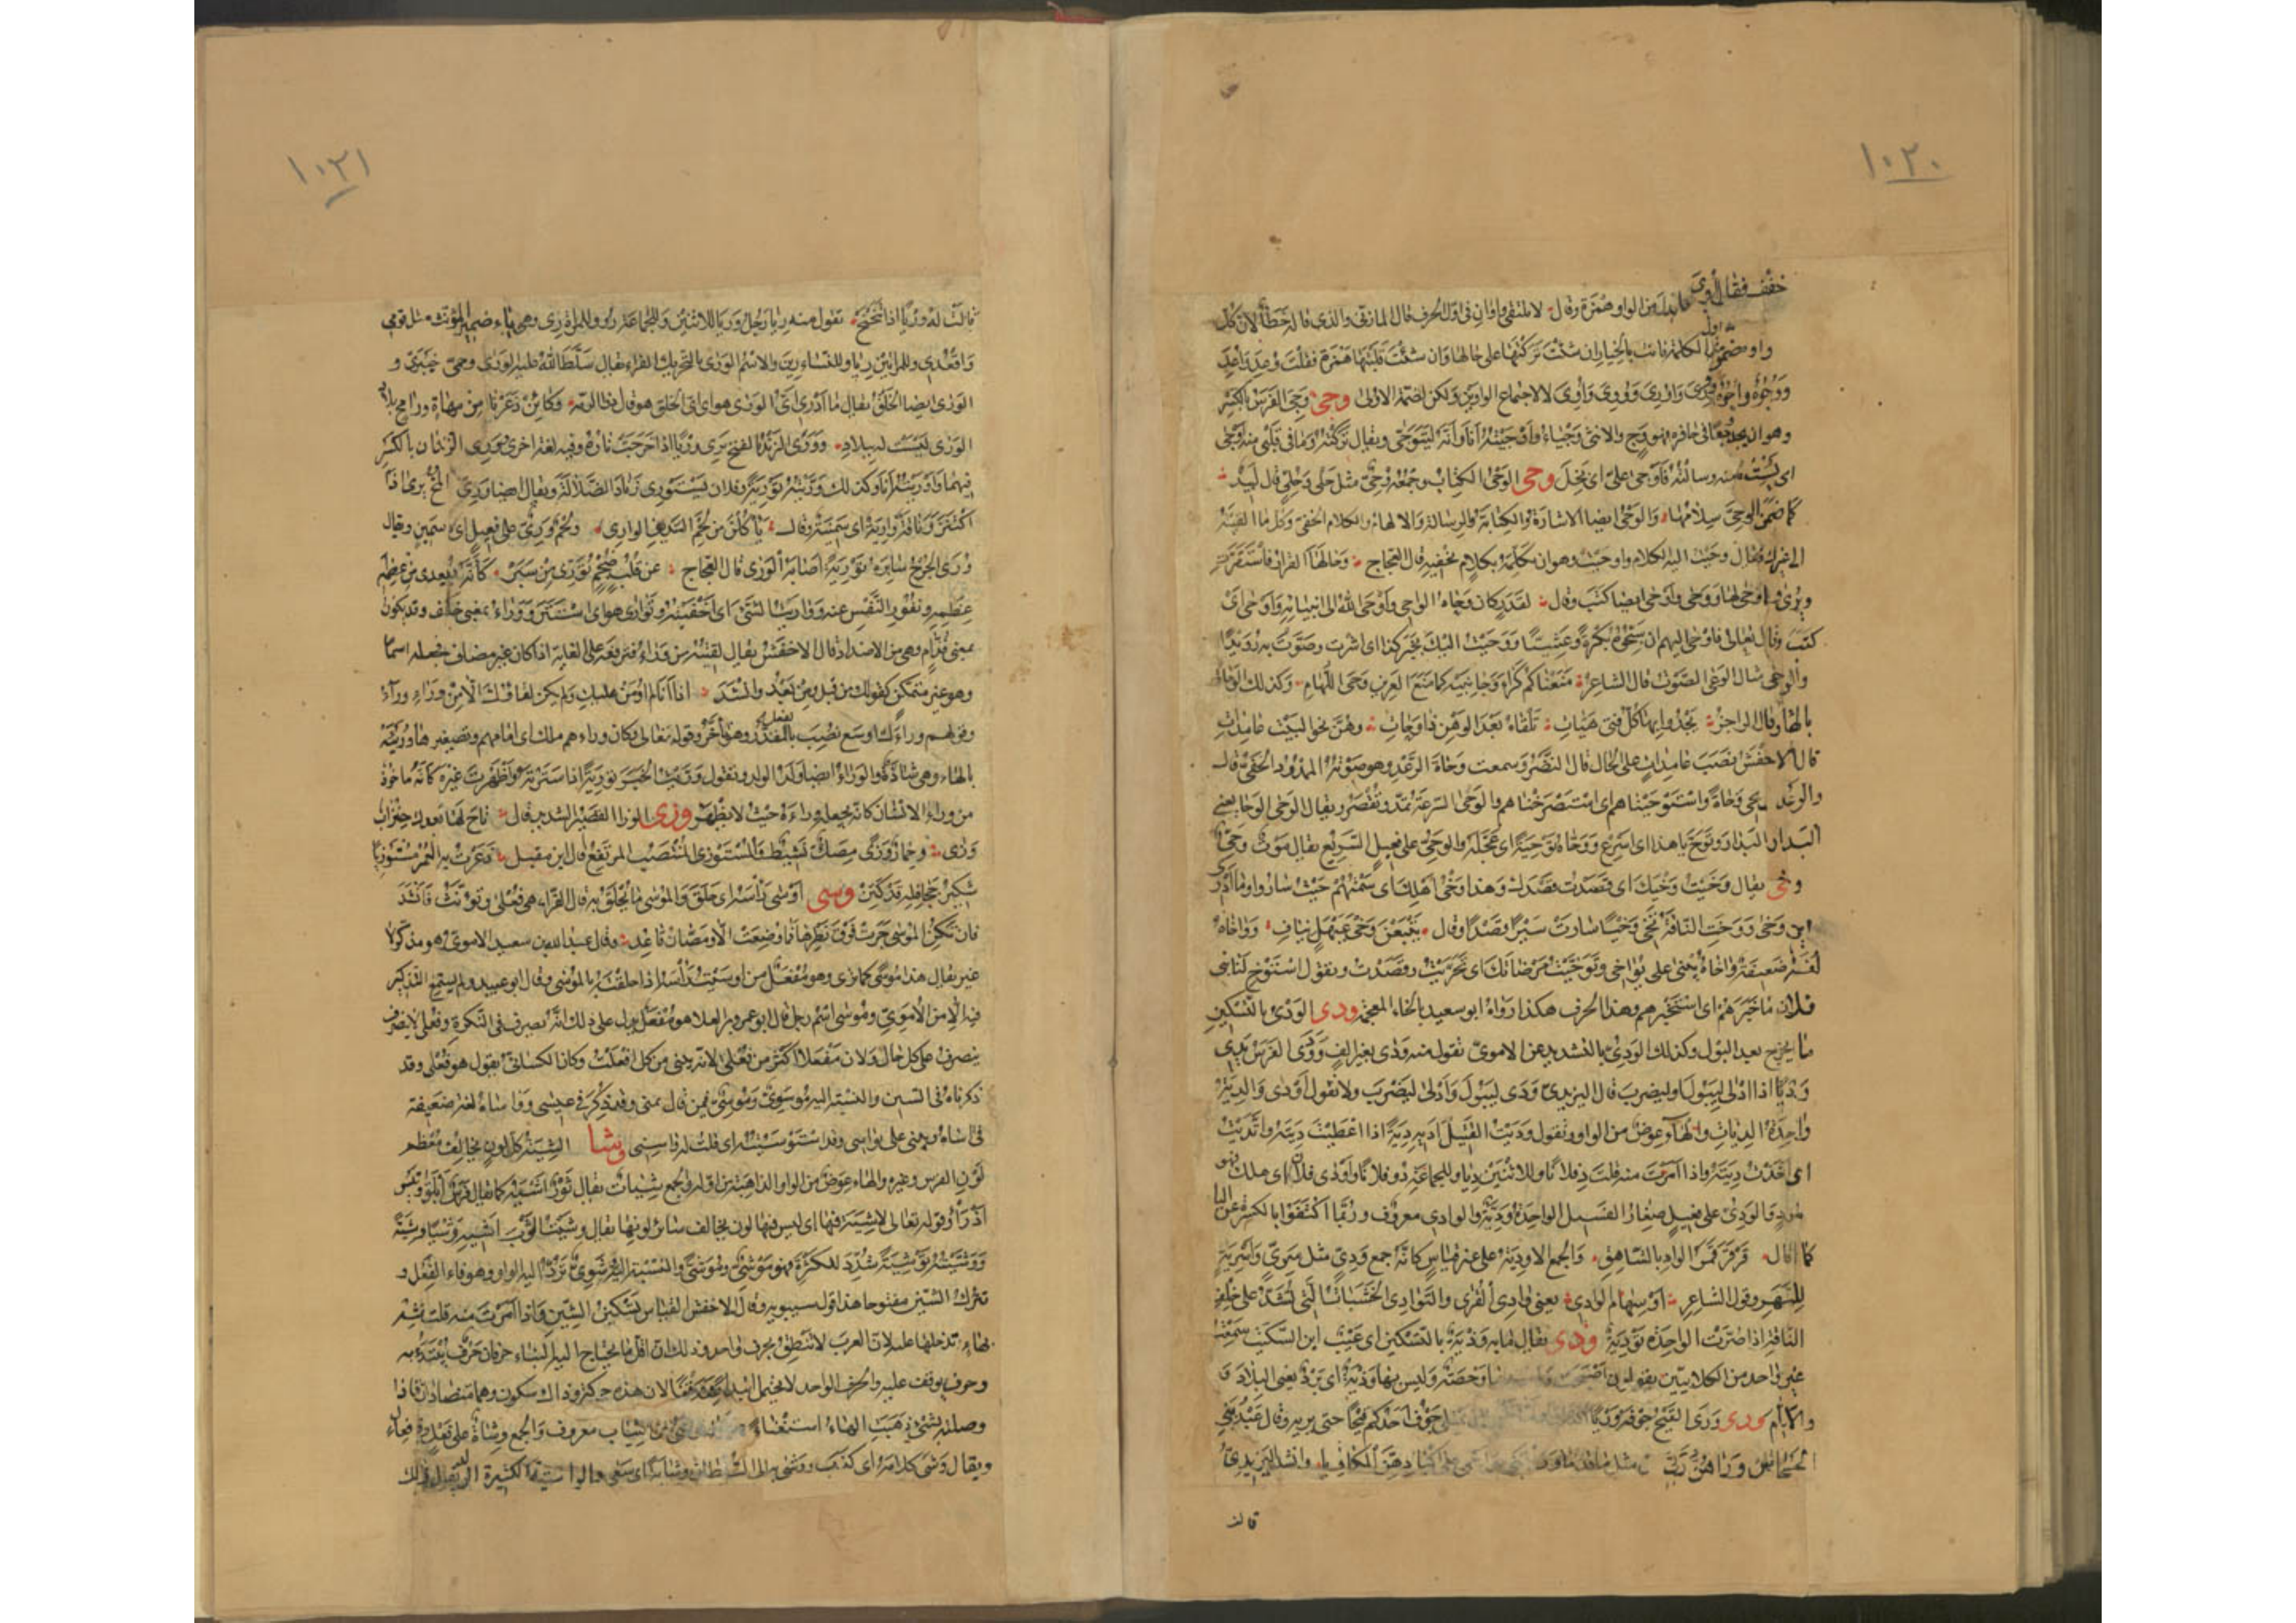 ١٠٢٠
خفف فقال أوى
فابدل من الواو همزة وقال لا يلتقى واوان فى اول الحرف قال المازنى والذى قاله خطأ لان كل
واو مضمومة فى اول الكلمة فانت بالخيار ان شئت تركتها على حالها وان شئت قلبتها همزة فقلت وعد واعد
ووجوه واجوه وورى واورى وووى واوى لا لاجتماع الواوين ولكن لضمة الاولى وجى وجى الفرس بالكسر
وهو ان يجد وجعا فى حافره فهو وج والانثى وجياء واوجيته انا وانه ليتوجى ويقال تركته وما فى قلبى منه اوجى
اى يئست منه وسالته فاوجى على اى بخل وحى الوحى الكتاب وجمعه وحى مثل حلى وحلى قال لبيد
كما ضمن الوحى سلامها والوحى ايضا الاشارة والكتابة والرسالة والالهام والكلام الخفى وكل ما القيته
الى غيرك يقال وحيت اليه الكلام واوحيت وهو ان تكلمه بكلام تخفيه قال العجاج وحى لها القرار فاستقرت
ويروى اوحى لها ووحى واوحى ايضا كتب وقال لقدر كان وحاه الواحى واوحى الله الى انبيائه واوحى اى
كتب وقال تعالى فاوحى اليهم ان سبحوا بكرة وعشيا ووحيت اليك بخبر كذا اى اشرت وصوت به رويدا
والوحى مثال الوغى الصوت قال الشاعر منعناكم كراء وجانبيه كما منع العرين وحى اللهام وكذلك الوحاة
بالهاء وقال الراجز يحدو بها كل فتى هيات تلقاه بعد الوهن ذا وحات وهن نحو البيت عامدات
قال الاخفش نصب عامدات على الحال قال النضر وسمعت وحاة الرعد وهو صوته الممدود الخفى قال
والرعد يحى وحاة واستوحيناهم اى استصرخناهم والوحى السرعة يمد ويقصر ويقال الوحى الوحا يعنى
البدار البدار وتوح يا هذا اى اسرع ووحاه توحية اى عجله والوحى على فعيل السريع يقال موت وحى
وخى يقال وخيت وخيك اى قصدت قصدك وهذا وخى اهلك اى سمتهم حيث ساروا وما ادرى
اين وخى ووخت الناقة تخى وخيا سارت سيرا قصدا وقال يتبعن وخى عيهل نياف وواخاه
لغة ضعيفة فى اخاه يبنى على يواخى وتوخيت مرضاتك اى تحريت وقصدت وتقول استوخ لنا بنى
فلان ما خبرهم اى استخبرهم وهذا الحرف هكذا رواه ابو سعيد بالخاء المعجمة ودى الودى بالتسكين
ما يخرج بعد البول وكذلك الودى بالتشديد عن الاموى تقول منه ودى بغير الف وودى الفرس يدى
وديا اذا ادلى ليبول او ليضرب قال اليزيدى ودى ليبول وادلى ليضرب ولا تقول اودى والدية
واحدة الديات والهاء عوض من الواو وتقول وديت القتيل اديه دية اذا اعطيت ديته واتديت
اى اخذت ديته واذا امرت منه قلت د فلانا وللاثنين ديا وللجماعة دوا فلانا واودى فلان اى هلك فهو
مود والودى على فعيل صغار الفسيل الواحدة ودية والوادى معروف وربما اكتفوا بالكسرة عن الياء
كما قال قرقر قمر الواد بالشاهق والجمع الاودية على غير قياس كانه جمع ودى مثل سرى واسرية
للنهر وقول الشاعر او سهام الوادى يعنى وادى القرى والتوادى الخشبات التى تشد على خلف
الناقة اذا صرت الواحدة تودية وذى يقال ما به وذية بالتسكين اى عيب ابن السكيت سمعت
غير واحد من الكلابيين يقولون اصبحت وليس بها وحصة وليس بها وذية اى برد يعنى البلاد و
والايام ورى ورى القيح جوفه وريا جوف احدكم قيحا حتى يريه وقال عبد بنى
الحسحاس وراهن ربى مثل ما قد ورينى واحمى على اكبادهن المكاويا وانشد اليزيدى
قالت
١٠٢١
قالت له وريا اذا تنحنح تقول منه ريا رجل وريا للاثنين وللجماعة روا وللمراة رى وهى ياء ضمير المؤنث مثل قومى
واقعدى وللمراتين ريا وللنساء رين والاسم الورى بالتحريك الفراء يقال سلط الله عليه الورى وحمى خيبرى و
الورى ايضا الخلق يقال ما ادرى اى الورى هو اى اى الخلق هو قال ذو الرمة وكائن ذعرنا من مهاة ورامح بلاد
الورى ليست له ببلاد وورى الزند بالفتح يرى وريا اذا خرجت ناره وفيه لغة اخرى ورى الزند يرى بالكسر
فيهما واوريته انا وكذلك وريته تورية وفلان يستورى زناد الضلالة ويقال ايضا ورى المخ يرى اذا
اكتنز وناقة وارية اى سمينة وقال ياكلن من لحم السديف الوارى ولحم ورى على فعيل اى سمين ويقال
ورى الجرح سائره تورية اصابه الورى قال العجاج عن قلب ضجم تورى من سبر كانه يعدى من عظمه
عظمه ونفور النفس عنه وواريت الشئ اى اخفيته وتوارى هو اى استتر ووراء بمعنى خلف وقد يكون
بمعنى قدام وهى من الاضداد قال الاخفش يقال لقيته من وراء فترفعه على الغاية اذا كان غير مضاف تجعله اسما
وهو غير متمكن كقولك من قبل ومن بعد وانشد اذا انا لم اومن عليك ولم يكن لقاؤك الا من وراء وراء
وقولهم وراءك اوسع نصب بالفعل المقدر وهو تاخر وقوله تعالى وكان وراءهم ملك اى امامهم وتصغيرها ورية
بالهاء وهى شاذة والوراء ايضا ولد الولد وتقول وريت الخبر تورية اذا سترته واظهرت غيره كانه ماخوذ
من وراء الانسان كانه يجعله وراءه حيث لا يظهر وزى الوزا القصير الشديد قال تاح لها بعدك حنزاب
وزى وحمار وزى مصك نشيط والمستوزى المنتصب المرتفع قال ابن مقبل ذعرت به العير مستوزيا
شكير جحافله قد كتن وسى اوسى راسه اى حلق والموسى ما يحلق به قال الفراء هى فعلى وتؤنث وانشد
فان تكن الموسى جرت فوق بظرها فما وضعت الا ومصان قاعد وقال عبد الله بن سعيد الاموى هو مذكر لا
غير يقال هذا موسى كما ترى وهو مفعل من اوسيت راسه اذا حلقته بالموسى وقال ابو عبيد ولم يسمع التذكير
فيه الا من الاموى وموسى اسم رجل قال ابو عمرو بن العلا هو مفعل يدل على ذلك انه يصرف فى النكرة وفعلى لا ينصرف
ينصرف على كل حال ولان مفعلا اكثر من فعلى لانه يبنى من كل افعلت وكان الكسائى يقول هو فعلى وقد
ذكرناه فى السين والنسبة اليه موسوى وموسى فيمن قال يمنى وقد ذكر فى عيسى وواساه لغة ضعيفة
فى اساه ويبنى على يواسى وقد استوسيته اى قلت له واسنى وشا الشية كل لون يخالف معظم
لون الفرس وغيره والهاء عوض من الواو الذاهبة من اوله والجمع شيات يقال ثور اشيه كما يقال فرس ابلق وتيس
اذرا وقوله تعالى لاشية فيها اى ليس فيها لون يخالف سائر لونها يقال وشيت الثوب اشيه وشيا وشية
ووشيته توشية شدد للكثرة فهو موشى وموشى والنسبة اليه وشوى ترد اليه الواو وهو فاء الفعل و
تترك الشين مفتوحا هذا قول سيبويه وقال الاخفش القياس تسكين الشين واذا امرت منه قلت شه
بهاء تدخلها عليه لان العرب لا تنطق بحرف واحد وذلك ان اقل ما يحتاج اليه البناء حرفان حرف يبتدا به
وحرف يوقف عليه والحرف الواحد لا يحتمل ابتداء ووقفا لان هذه حركة وذاك سكون وهما متضادان فاذا
وصلته بشئ ذهبت الهاء استغناء من الثياب معروف والجمع وشاء على فعل وفعال
ويقال وشى كلامه اى كذب ووشى به الى السلطان وشاية اى سعى والواشية الكثيرة الولد يقال ذلك